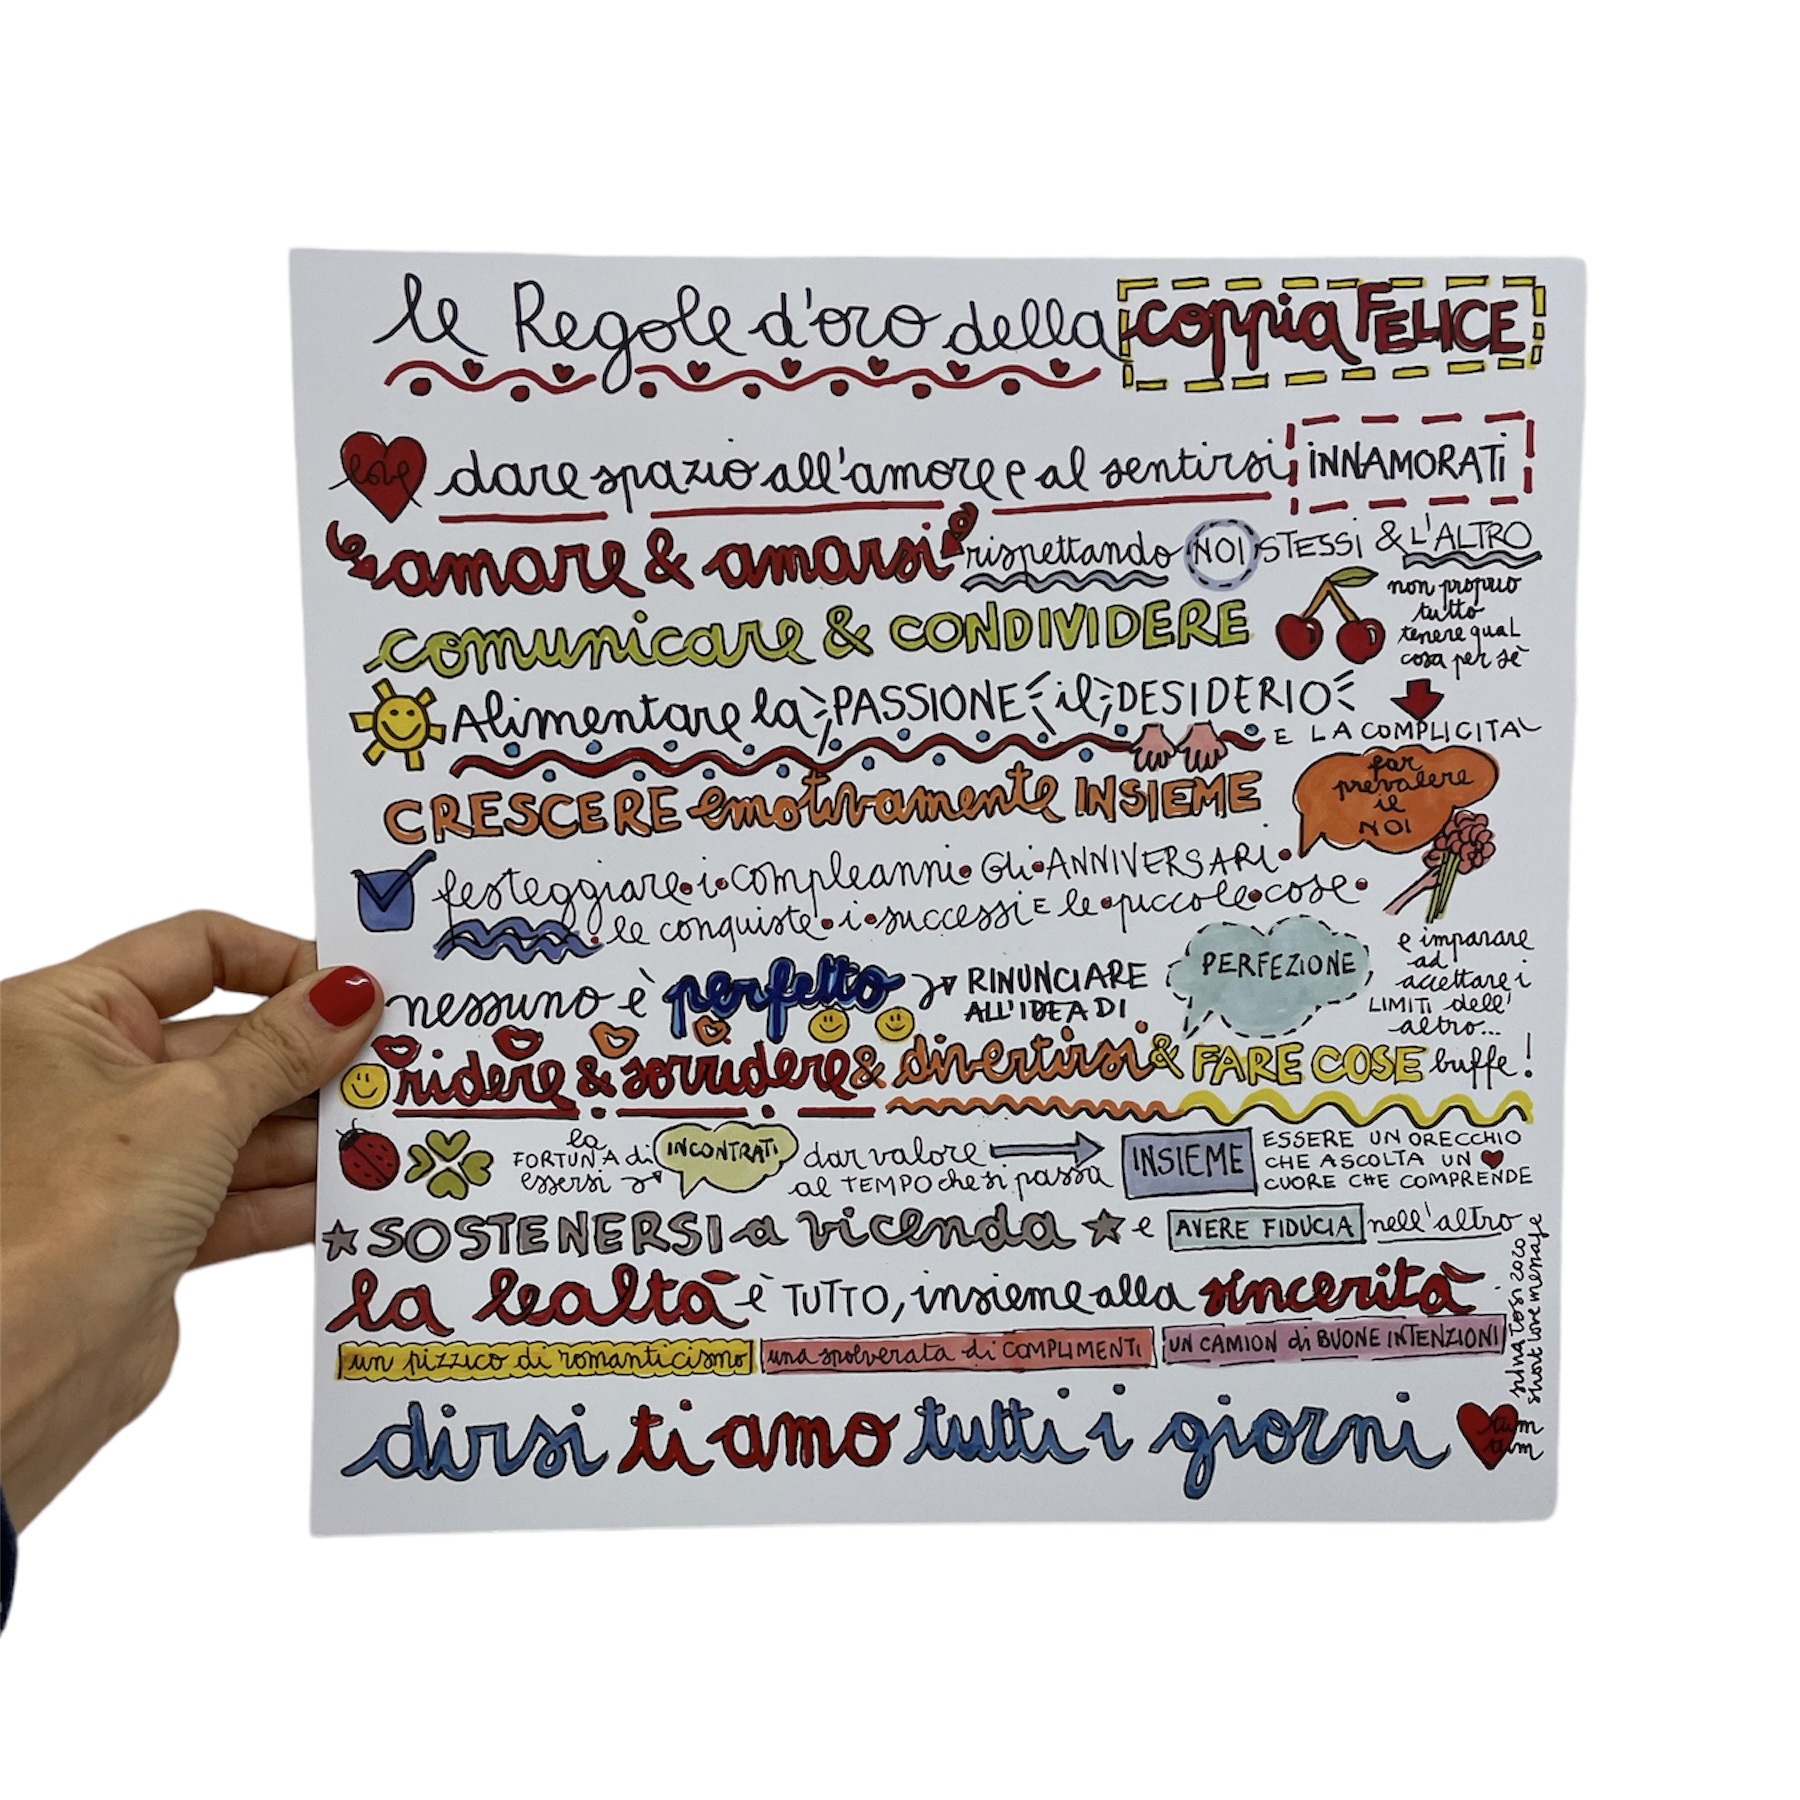 le Regole d'oro della coppia FELICE
love dare spazio all'amore e al sentirsi INNAMORATI
amare & amarsi rispettando NOI STESSI & L'ALTRO
comunicare & CONDIVIDERE
non proprio
tutto
tenere qual
cosa per sè
Alimentare la PASSIONE il DESIDERIO
E LA COMPLICITA
CRESCERE emotivamente INSIEME
far
prevalere
il
NOI
festeggiare i compleanni Gli ANNIVERSARI
le conquiste i successi E le piccole cose
nessuno è perfetto RINUNCIARE
ALL'IDEA DI
PERFEZIONE
e imparare
ad
accettare i
LIMITI dell'
altro...
ridere & sorridere & divertirsi & FARE COSE buffe!
la
FORTUNA di
essersi
INCONTRATI
dar valore
al TEMPO che si passa
INSIEME
ESSERE UN ORECCHIO
CHE ASCOLTA UN
CUORE CHE COMPRENDE
SOSTENERSI a vicenda e AVERE FIDUCIA nell'altro
la lealtà è TUTTO, insieme alla sincerità
un pizzico di romanticismo una spolverata di COMPLIMENTI UN CAMION di BUONE INTENZIONI
dirsi ti amo tutti i giorni
tum
tum
silvia tosi 2020
short love message